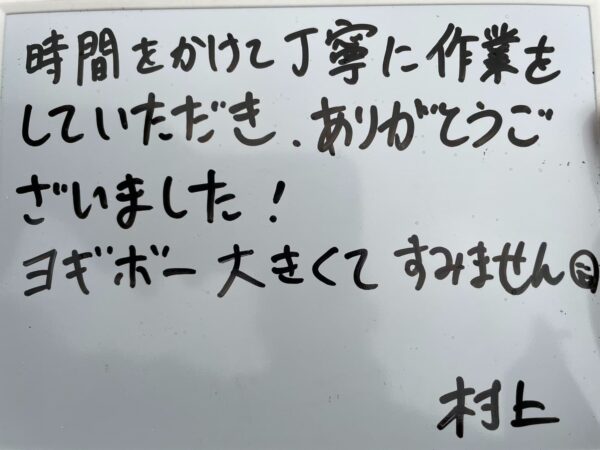 時間をかけて丁寧に作業を
していただき、ありがとうご
ざいました!
ヨギボー大きくてすみません
村上